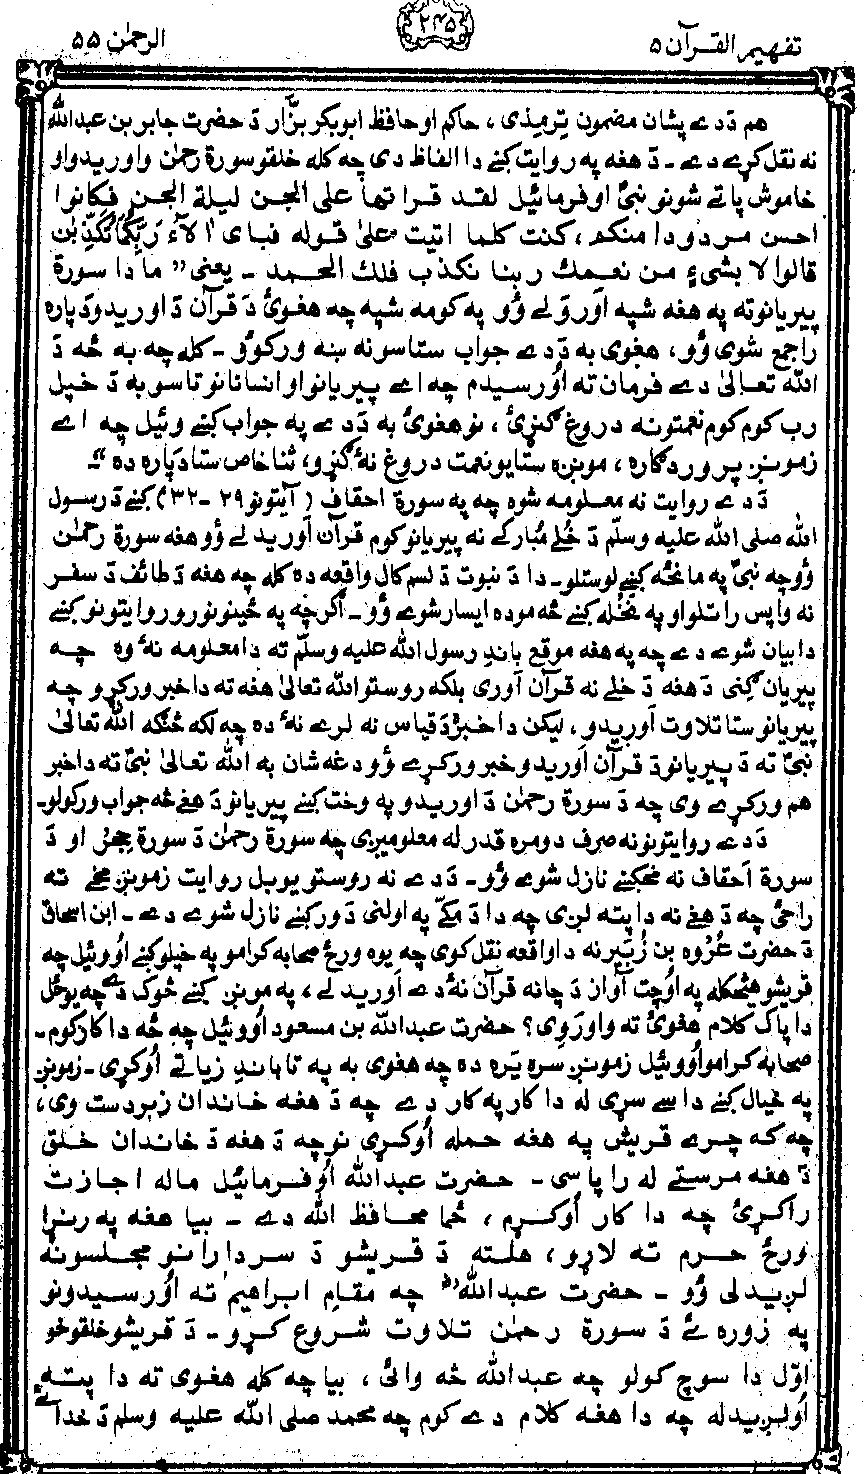 تفهیم القرآن ۵
۲۴۵
الرحمٰن ۵۵
هم دَدے پشان مضمون ترمذی، حاکم او حافظ ابوبکر بزّار دَ حضرت جابر بن عبداللهؓ
نه نقل کړے دے ـ دَ هغه په روایت کښے دا الفاظ دی چه کله خلقو سورة رحمٰن واوریدو او
خاموش پاتے شو نو نبیؐ اوفرمائیل لقد قراتها علی الجن لیلة الجن فکانوا
احسن مردودا منکم، کنت کلما اتیت علیٰ قوله فبای اٰلآءِ رَبِّکُمَا تُکَذِّبٰن
قالوا لا بشیءٍ من نعمك ربنا نکذب فلك الحمد ـ یعنی "ما دا سورة
پیریانو ته په هغه شپه اَوروَلے وُو په کومه شپه چه هغویٔ دَ قرآن دَ اوریدو دَپاره
راجمع شوی وُو، هغوی به دَدے جواب ستاسو نه ښه ورکوُو ـ کله چه به څه دَ
الله تعالیٰ دے فرمان ته اوُرسیدم چه اے پیریانو او انسانانو تاسو به دَ خپل
رب کوم کوم نعمتونه دروغ ګنړیٔ، نو هغویٔ به دَدے په جواب کښے وئیل چه اے
زمونږ پروردګاره، مونږه ستا یو نعمت دروغ نهٔ ګنړو، ثنا خاص ستا دَپاره ده" ـ
دَدے روایت نه معلومه شوه چه په سورة احقاف (آیتونو ۲۹ ـ ۳۲) کښے دَ رسول
الله صلی الله علیه وسلّم دَ خُلے مُبارکے نه پیریانو کوم قرآن اَوریدلے وُو هغه سورة رحمٰن
وُو چه نبیؐ په مانځه کښے لوستلو ـ دا دَ نبوت دَ لسم کال واقعه ده کله چه هغه دَ طائف دَ سفر
نه واپس راتلو او په نخله کښے څه موده ایسار شوے وُو ـ اګرچه په ځینو نورو روایتونو کښے
دا بیان شوے دے چه په هغه موقع باندِ رسول الله علیه وسلّم ته دا معلومه نهٔ وه چه
پیریان ګنی دَ هغه دَ خلے نه قرآن آوری بلکه روستو الله تعالیٰ هغه ته دا خبر ورکړو چه
پیریانو ستا تلاوت آوریدو، لیکن دا خبره دَ قیاس نه لرے نهٔ ده چه لکه څنګه الله تعالیٰ
نبیؐ ته دَ پیریانو دَ قرآن اوریدو خبر ورکړے وُو دغه شان به الله تعالیٰ نبیؐ ته دا خبر
هم ورکړے وی چه دَ سورة رحمٰن دَ اوریدو په وخت کښے پیریانو دَ هغے څه جواب ورکولو ـ
دَدے روایتونو نه صرف دومره قدر له معلومیږی چه سورة رحمٰن دَ سورة حِجر او دَ
سورة اَحقاف نه مخکښے نازل شوے وُو ـ دَدے نه روستو یو بل روایت زمونږ مخے ته
راځی چه دَ هغے نه دا پته لږی چه دا دَ مکّے په اولنی دَور کښے نازل شوے دے ـ ابن اسحاق
دَ حضرت عُروه بن زُبَیر نه دا واقعه نقل کوی چه یوه ورځ صحابه کرامو په خپلو کښے اوُوئیل چه
قریشو هیڅکله په اوُچت آواز دَ چا نه قرآن نهٔ دے آوریدلے، په مونږ کښے څوک دے چه یو ځل
دا پاک کلام هغویٔ ته واوروِی؟ حضرت عبدالله بن مسعود اوُوئیل چه څه دا کار کوم ـ
صحابهٔ کرامو اوُوئیل زمونږ سره یَره ده چه هغوی به په تا باندِ زیاتے اوُکړی ـ زمونږ
په خیال کښے داسے سړی له دا کار په کار دے چه دَ هغه خاندان زبردست وی،
چه که چرے قریش په هغه حمله اوُکړی نو چه دَ هغه دَ خاندان خلق
دَ هغه مرستے له را پاسی ـ حضرت عبدالله اوُفرمائیل ما له اجازت
راکړیٔ چه دا کار اوُکړم، ځما محافظ الله دے ـ بیا هغه په رنړا
ورځ حرم ته لاړو، هلته دَ قریشو دَ سردارانو مجلسونه
لږیدلی وُو ـ حضرت عبداللهؓ چه مقامِ ابراهیم ته اوُرسیدو نو
په زوره ئے دَ سورة رحمٰن تلاوت شروع کړو ـ دَ قریشو خلقو خو
اوّل دا سوچ کولو چه عبدالله څه وائی، بیا چه کله هغوی ته دا پته
اُولږیدله چه دا هغه کلام دے کوم چه محمد صلی الله علیه وسلم دَ خدائے